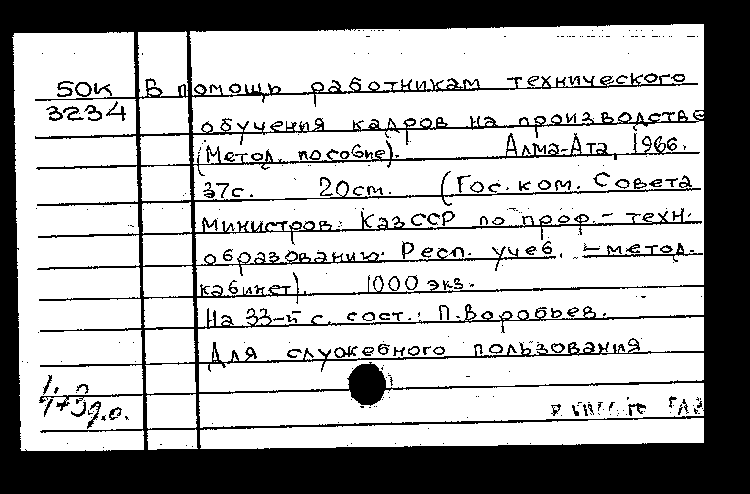 50К В помощь работникам технического
3234
обучения кадров на производстве
(Метод. пособие). Алма-Ата, 1966.
37с. 20см. (Гос. ком. Совета
Министров КазССР по проф.- техн.
образованию. Респ. учеб. -метод.
кабинет). 1000 экз.
На 33-й с. сост.: П.Воробьев.
Для служебного пользования